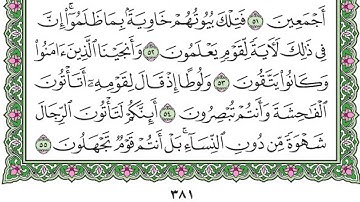 أَجْمَعِينَ ٥١ فَتِلْكَ بُيُوتُهُمْ خَاوِيَةً بِمَا ظَلَمُوٓا۟ ۗ إِنَّ
فِى ذَٰلِكَ لَـَٔايَةً لِّقَوْمٍ يَعْلَمُونَ ٥٢ وَأَنجَيْنَا ٱلَّذِينَ ءَامَنُوا۟
وَكَانُوا۟ يَتَّقُونَ ٥٣ وَلُوطًا إِذْ قَالَ لِقَوْمِهِۦٓ أَتَأْتُونَ
ٱلْفَـٰحِشَةَ وَأَنتُمْ تُبْصِرُونَ ٥٤ أَئِنَّكُمْ لَتَأْتُونَ ٱلرِّجَالَ
شَهْوَةً مِّن دُونِ ٱلنِّسَآءِ ۚ بَلْ أَنتُمْ قَوْمٌ تَجْهَلُونَ ٥٥
٣٨١